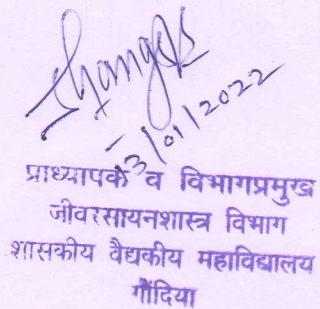 13/01/2022
प्राध्यापक व विभागप्रमुख
जीवरसायनशास्त्र विभाग
शासकीय वैद्यकीय महाविद्यालय
गोंदिया